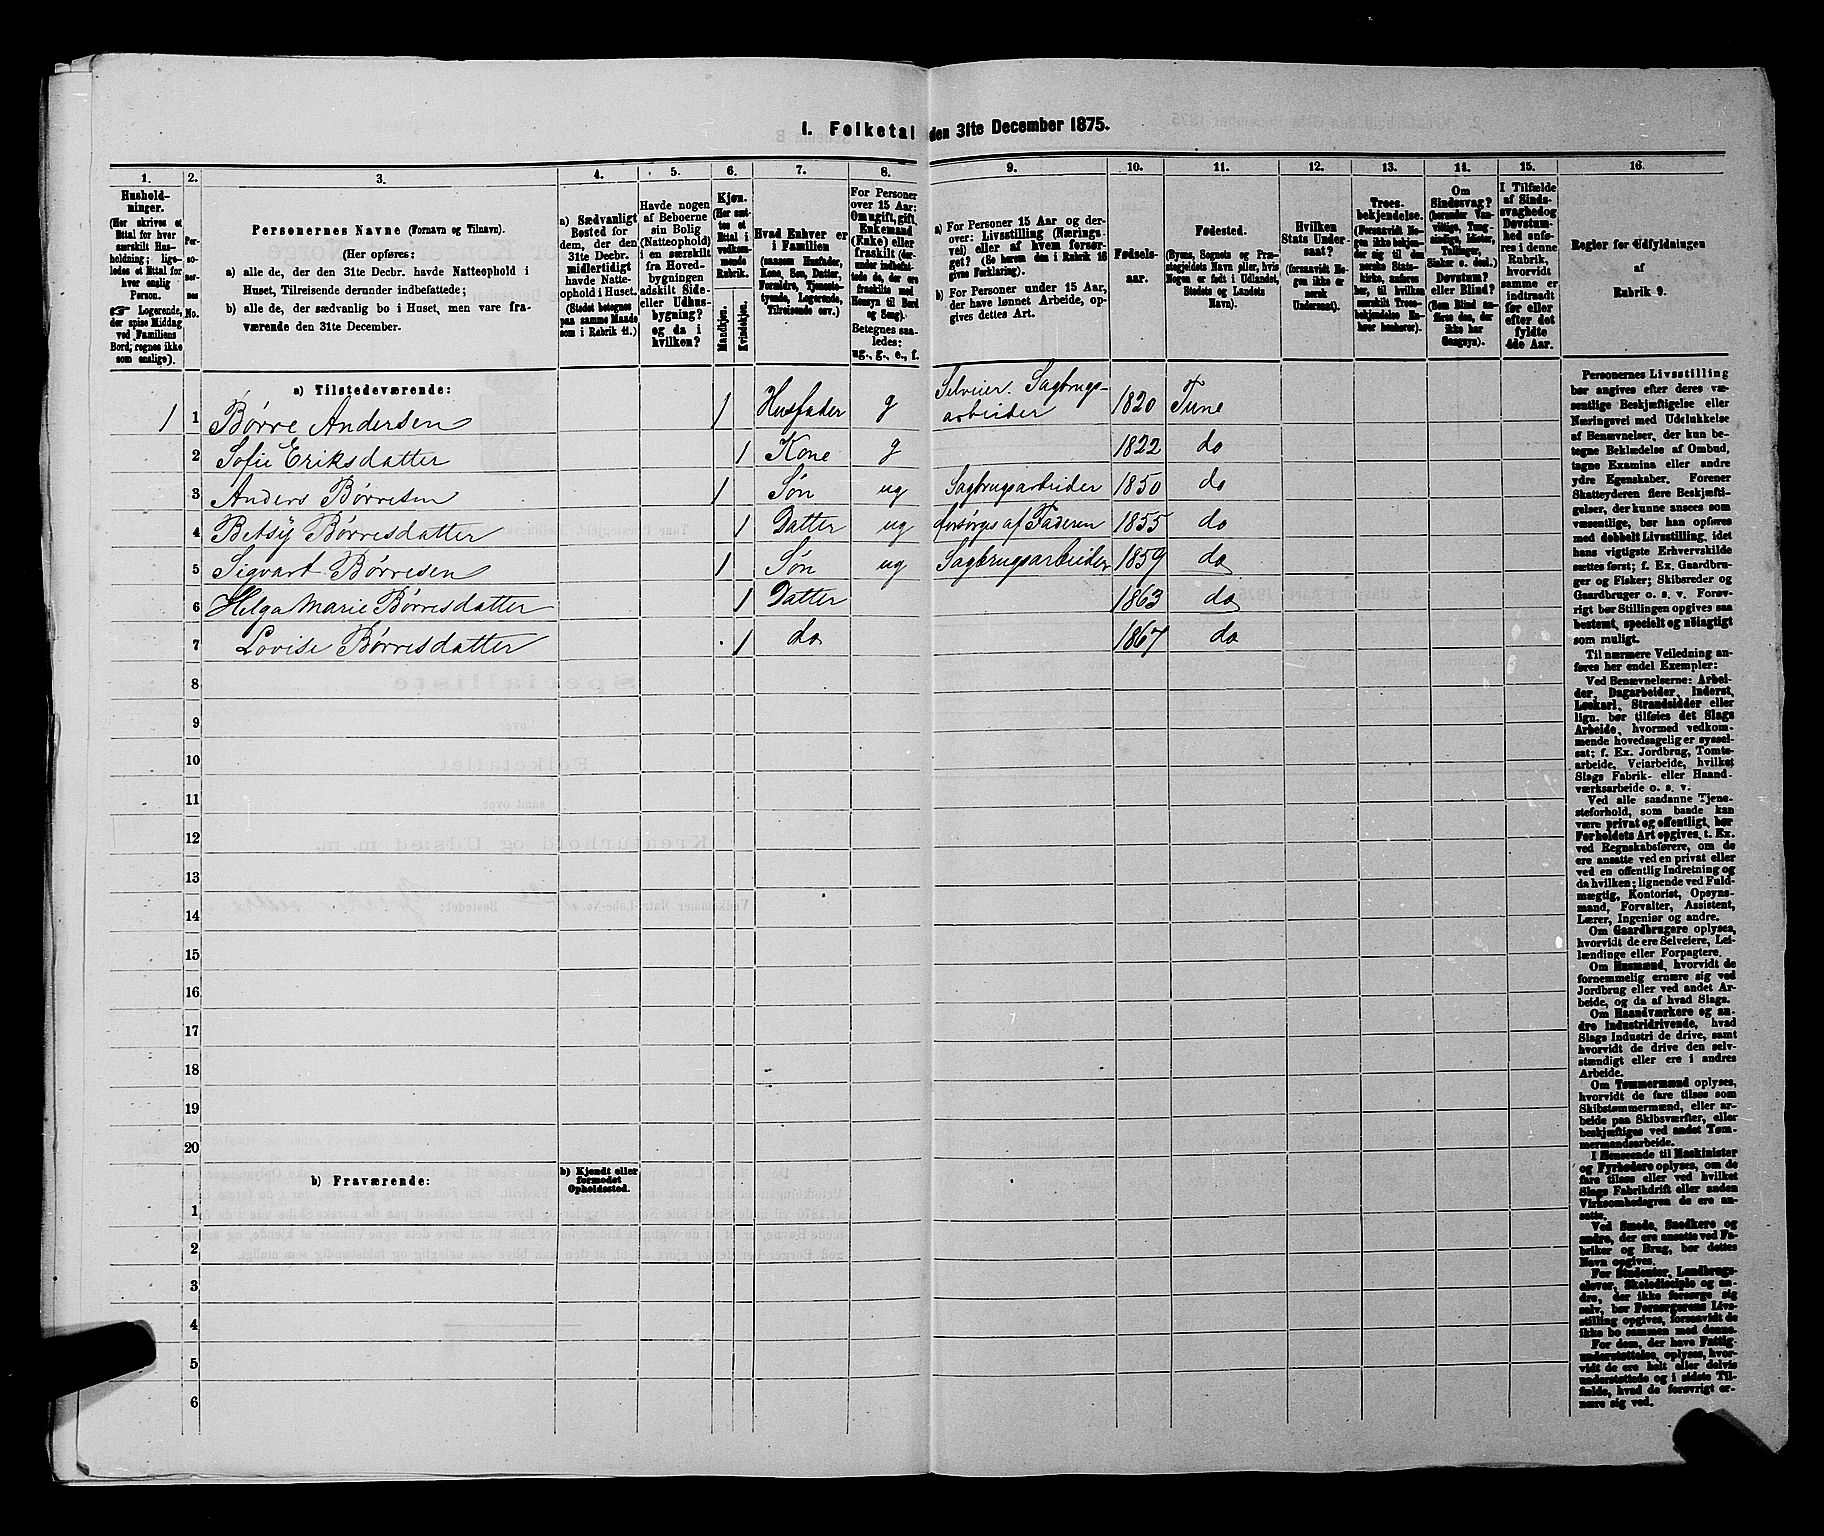 I. Folketal den 31te December 1875.
1. 2. 3. 4. 5. 6. 7. 8. 9. 10. 11. 12. 13. 14. 15. 16.
Husholdninger.
(Her skrives et
Ettal for hver
særskilt Husholdning; ligeledes
et Ettal for
hver enslig
Person.
☞ Logerende,
der spise Middag
ved Familiens
Bord, regnes ikke
som enslige).
Personernes No.
Personernes Navne (Fornavn og Tilnavn).
(Her opføres:
a) alle de, der den 31te Decbr. havde Natteophold i
Huset, Tilreisende derunder indbefattede;
b) alle de, der sædvanlig bo i Huset, men vare fraværende
den 31te December.
a) Sædvanligt
Bosted for
dem, der den
31te Decbr.
midlertidigt
havde Natteophold
i Huset.
(Stedet betegnes
paa samme Maade
som i Rubrik 11.)
Havde nogen
af Beboerne
sin Bolig
(Natteophold)
i en særskilt
fra Hovedbygningen
adskilt Side-
eller Udhusbygning?
og da i
hvilken?
Kjøn.
(Her sættes
et
Ettal i
vedkommende
Rubrik.
Mandkjøn.
Kvindekjøn.
Hvad Enhver er
i Familien
(saasom Husfader,
Kone, Søn, Datter,
Forældre, Tjenestetyende,
Logerende,
Tilreisende osv.)
For Personer
over 15 Aar:
Om ugift, gift,
Enkemand
(Enke) eller
fraskilt (derunder
indbefattede
de, der ere
fraskilte med
Hensyn til Bord
og Seng).
Betegnes saaledes:
ug., g., e., f.
a) For Personer 15 Aar og derover:
Livsstilling (Næringsvei)
eller af hvem forsørget?
(Se herom den i Rubrik 16
givne Forklaring).
b) For Personer under 15 Aar,
der have lønnet Arbeide, opgives
dettes Art.
Fødselsaar.
Fødested.
(Byens, Sognets og Præstegjeldets
Navn eller, hvis
Nogen er født i Udlandet,
Stedets og Landets
Navn).
Hvilken
Stats Undersaat?
(forsaavidt Nogen
ikke er
norsk
Undersaat).
Troesbekjendelse.
(Forsaavidt Nogen
ikke bekjender
sig til den
norske Statskirke,
anføres
her, til hvilken
særskilt Troesbekjendelse
Enhver
henhører).
Om
Sindssvag?
(herunder Vanvittige,
Tungsindige,
Idioter,
Tullinger,
Sinker o. desl.)
Døvstum?
eller Blind?
(Som Blind anføres
den, der
ikke har
Gangsyn).
I Tilfælde
af Sindssvaghed
og
Døvstumhed
anføres
i denne
Rubrik,
hvorvidt
samme er
indtraadt
før eller
efter det
fyldte
4de Aar.
Regler for Udfyldningen
af
Rubrik 9.
a) Tilstedeværende:
1 1 Børre Andersen 1 Husfader g Selveier. Sagbrugsarbeider 1820 Tune
2 Sofie Eriksdatter 1 Kone g 1822 do
3 Anders Børresen 1 Søn ug Sagbrugsarbeider 1850 do
4 Betsy Børresdatter 1 Datter ug forsørges af Faderen 1855 do
5 Sigvart Børresen 1 Søn ug Sagbrugsarbeider 1859 do
6 Helga Marie Børresdatter 1 Datter 1863 do
7 Lovise Børresdatter 1 do 1867 do
8
9
10
11
12
13
14
15
16
17
18
19
20
b) Fraværende:
b) Kjendt eller
formodet
Opholdssted.
1
2
3
4
5
6
Personernes Livsstilling
bør angives efter deres væsentlige
Beskjæftigelse eller
Næringsvei med Udelukkelse
af Benævnelser, der kun betegne
Beklædelse af Ombud,
tagne Examina eller andre
ydre Egenskaber. Forener
Skatteyderen flere Beskjæftigelser,
der kunne ansees som
væsentlige, bør han opføres
med dobbelt Livsstilling, idet
hans vigtigste Erhvervskilde
sættes først; f. Ex. Gaardbruger
og Fisker; Skibsreder og
Gaardbruger o. s. v. Forøvrigt
bør Stillingen opgives saa
bestemt, specielt og nøiagtigt
som muligt.
Til nærmere Veiledning anføres
her endel Exempler:
Ved Benævnelserne: Arbeider,
Dagarbeider, Inderst,
Løskarl, Strandsidder eller
lign. bør tilføies det Slags
Arbeide, hvormed vedkommende
hovedsagelig er sysselsat;
f. Ex. Jordbrug, Tomtearbeide,
Veiarbeide, hvilket
Slags Fabrik- eller Haandværksarbeide
o. s. v.
Ved alle saadanne Tjenesteforhold,
som baade kan
være privat og offentligt, bør
Forholdets Art opgives, t. Ex.
ved Regnskabsførere, om de
ere ansatte ved en privat eller
ved en offentlig Indretning og
da hvilken; lignende ved Fuldmægtig,
Kontorist, Opsynsmand,
Forvalter, Assistent,
Lærer, Ingeniør og andre.
Om Gaardbrugere oplyses,
hvorvidt de ere Selveiere, Leilændinge
eller Forpagtere.
Om Husmænd, hvorvidt de
fornemmelig ernære sig ved
Jordbrug eller ved andet Arbeide,
og da af hvad Slags.
Om Haandværkere og andre
Industridrivende, hvad
Slags Industri de drive, samt
hvorvidt de drive den selvstændigt
eller ere i andres
Arbeide.
Om Tømmermænd oplyses,
hvorvidt de fare tilsøs som
Skibstømmermænd, eller arbeide
paa Skibsværfter, eller
beskjæftiges ved andet Tømmermandsarbeide.
I Henseende til Maskinister
og Fyrbødere oplyses, om de
fare tilsøs eller ved hvilket
Slags Fabrikdrift eller anden
Virksomhedsgren de ere ansatte.
Ved Smede, Snedkere og
andre, der ere ansatte ved Fabriker
og Brug, bør dettes
Navn opgives.
For Studenter, Landbrugselever,
Skoledisciple og andre,
der ikke forsørge sig
selv, bør Forsørgerens Livsstilling
opgives, forsaavidt de
ikke bo sammen med denne.
For dem, der have Fattigunderstøttelse,
oplyses, hvorvidt
de ere helt eller delvis
understøttede og i sidste Tilfælde,
hvad de forøvrigt ernære
sig ved.